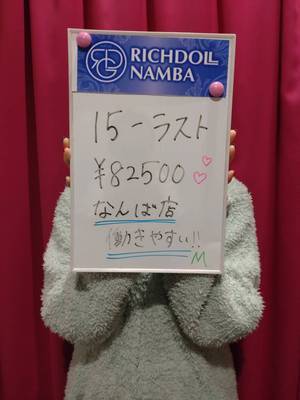 RICHDOLL
NAMBA
15-ラスト
¥82500
なんば店
働きやすい!!
M